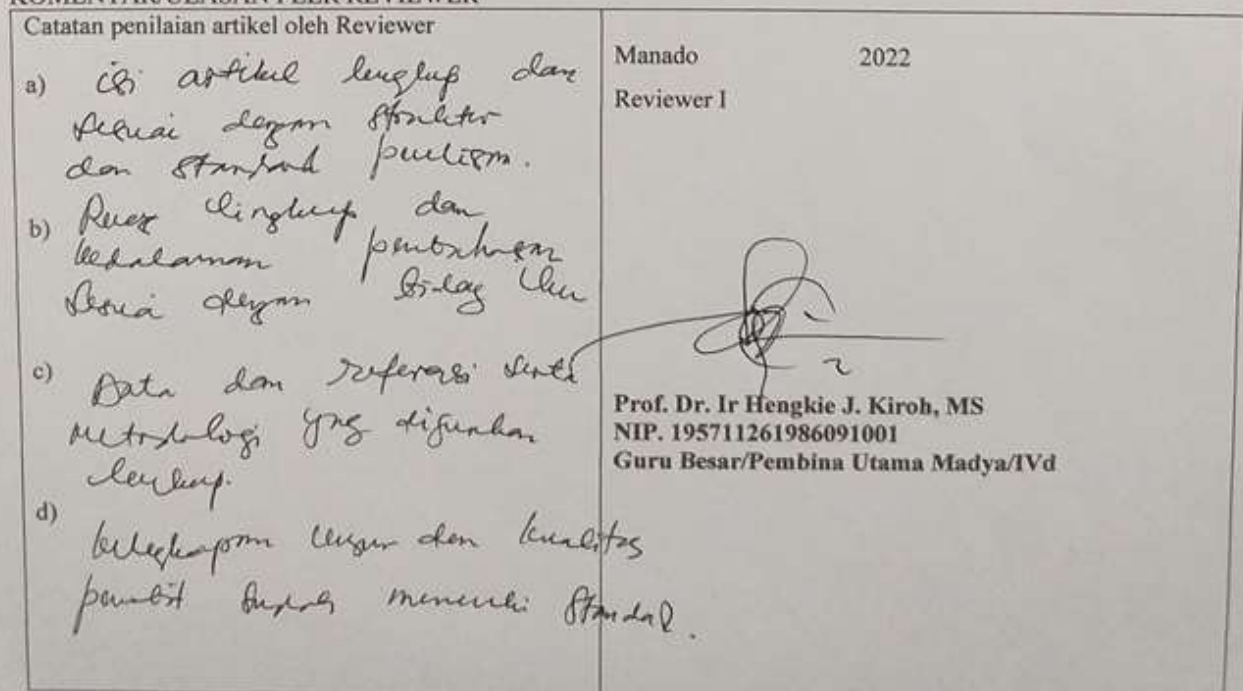 KOMENTAR/ULASAN PEER REVIEWER
Catatan penilaian artikel oleh Reviewer
a) isi artikel lengkap dan
sesuai dengan struktur
dan standard penulisan.
b) Ruang lingkup dan
kedalaman pembahasan
sesuai dengan bidang ilmu
c) Data dan referensi serta
metodologi yng digunakan
lengkap.
d) kelengkapan unsur dan kualitas
penerbit memenuhi standar.
Manado 2022
Reviewer I
Prof. Dr. Ir Hengkie J. Kiroh, MS
NIP. 195711261986091001
Guru Besar/Pembina Utama Madya/IVd